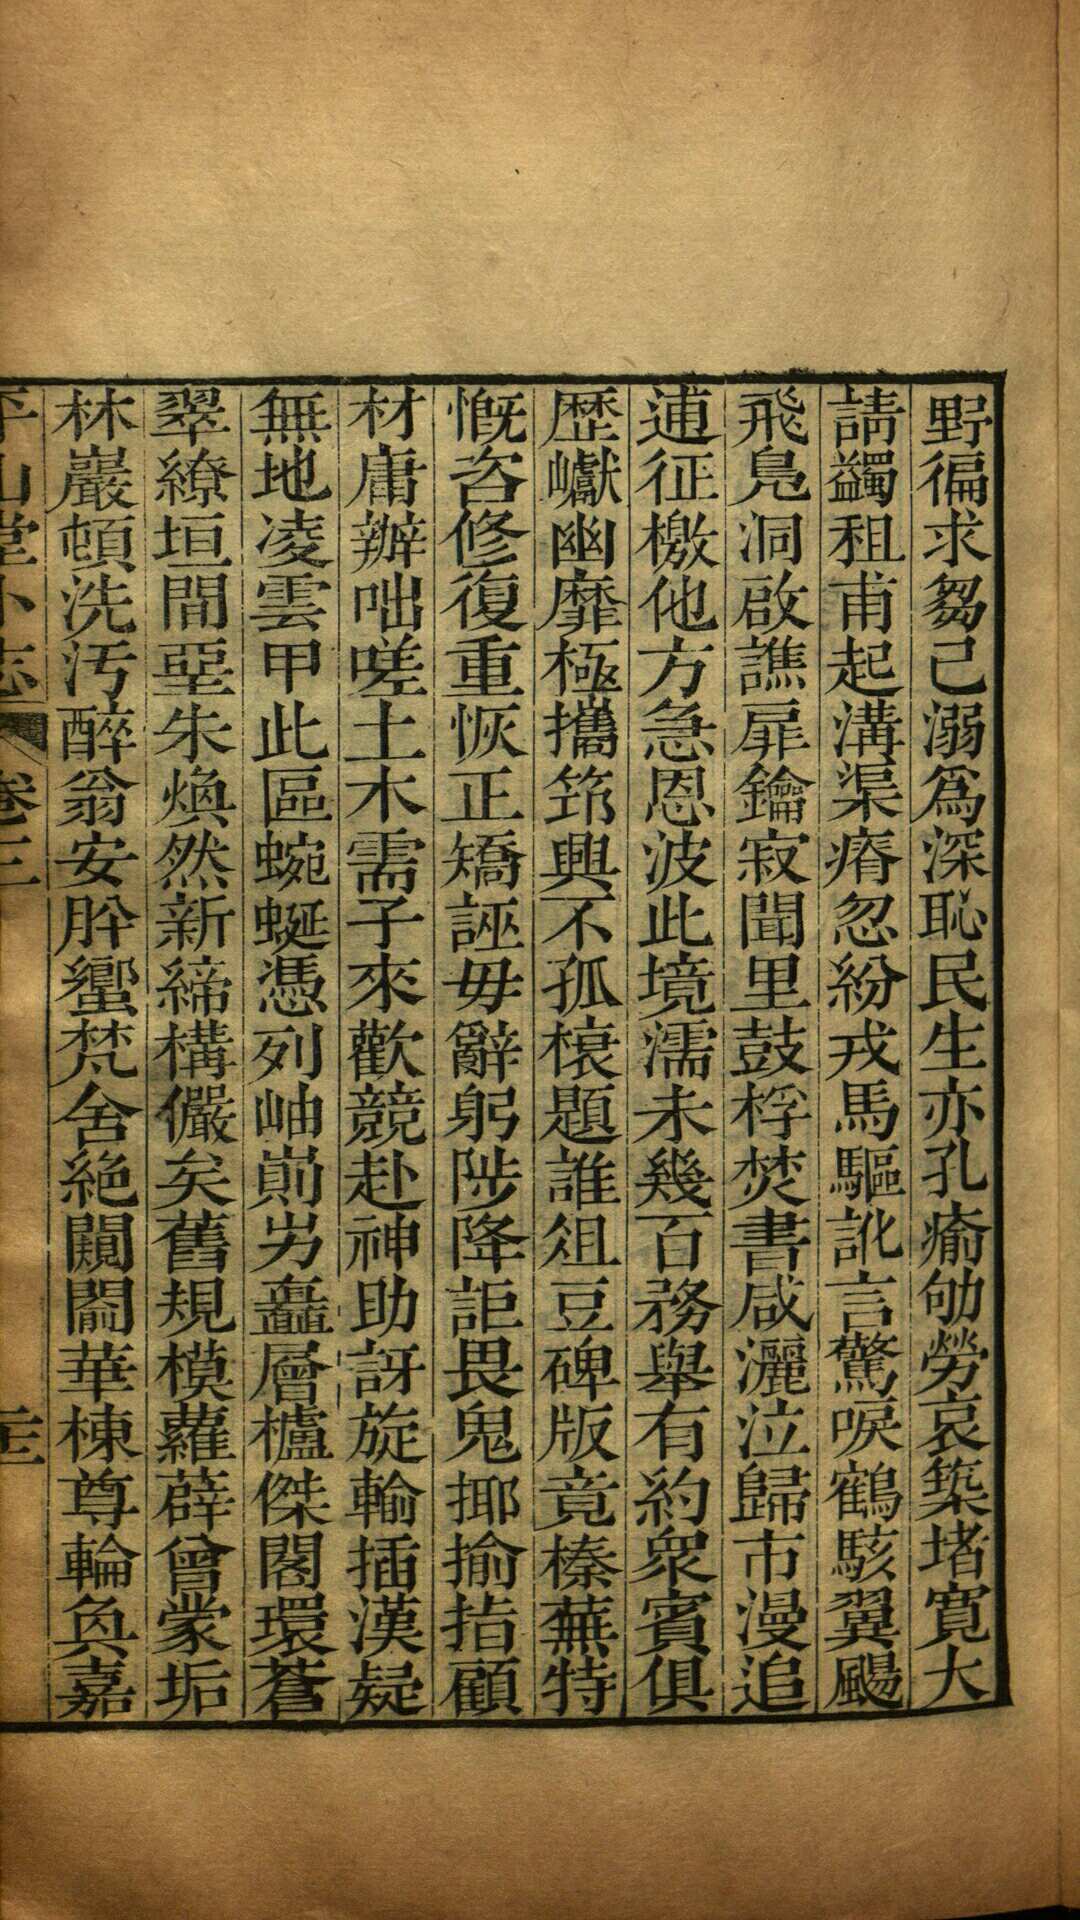 野徧求芻己溺爲深恥民生亦孔瘉劬勞哀築堵寬大
請蠲租甫起溝渠瘠忽紛戎馬驅訛言驚唳鶴駭翼颺
飛鳧洞啟譙扉鑰寂聞里鼓桴焚書咸灑泣歸市漫追
逋征檄他方急恩波此境濡未幾百務舉有約衆賓俱
歷巘幽靡極攜筇興不孤榱題誰俎豆碑版竟榛蕪特
慨咨修復重恢正矯誣毋辭躬陟降詎畏鬼揶揄指顧
材庸辦咄嗟土木需子來歡競赴神助訝旋輸插漢疑
無地凌雲甲此區蜿蜒憑列岫崱屴矗層櫨傑閣環蒼
翠繚垣間堊朱煥然新締構儼矣舊規模蘿薜曾蒙垢
林巖頓洗汚醉翁安肸蠁梵舍絶闚闟華棟尊輪奐嘉
平山堂小志 卷三 三十